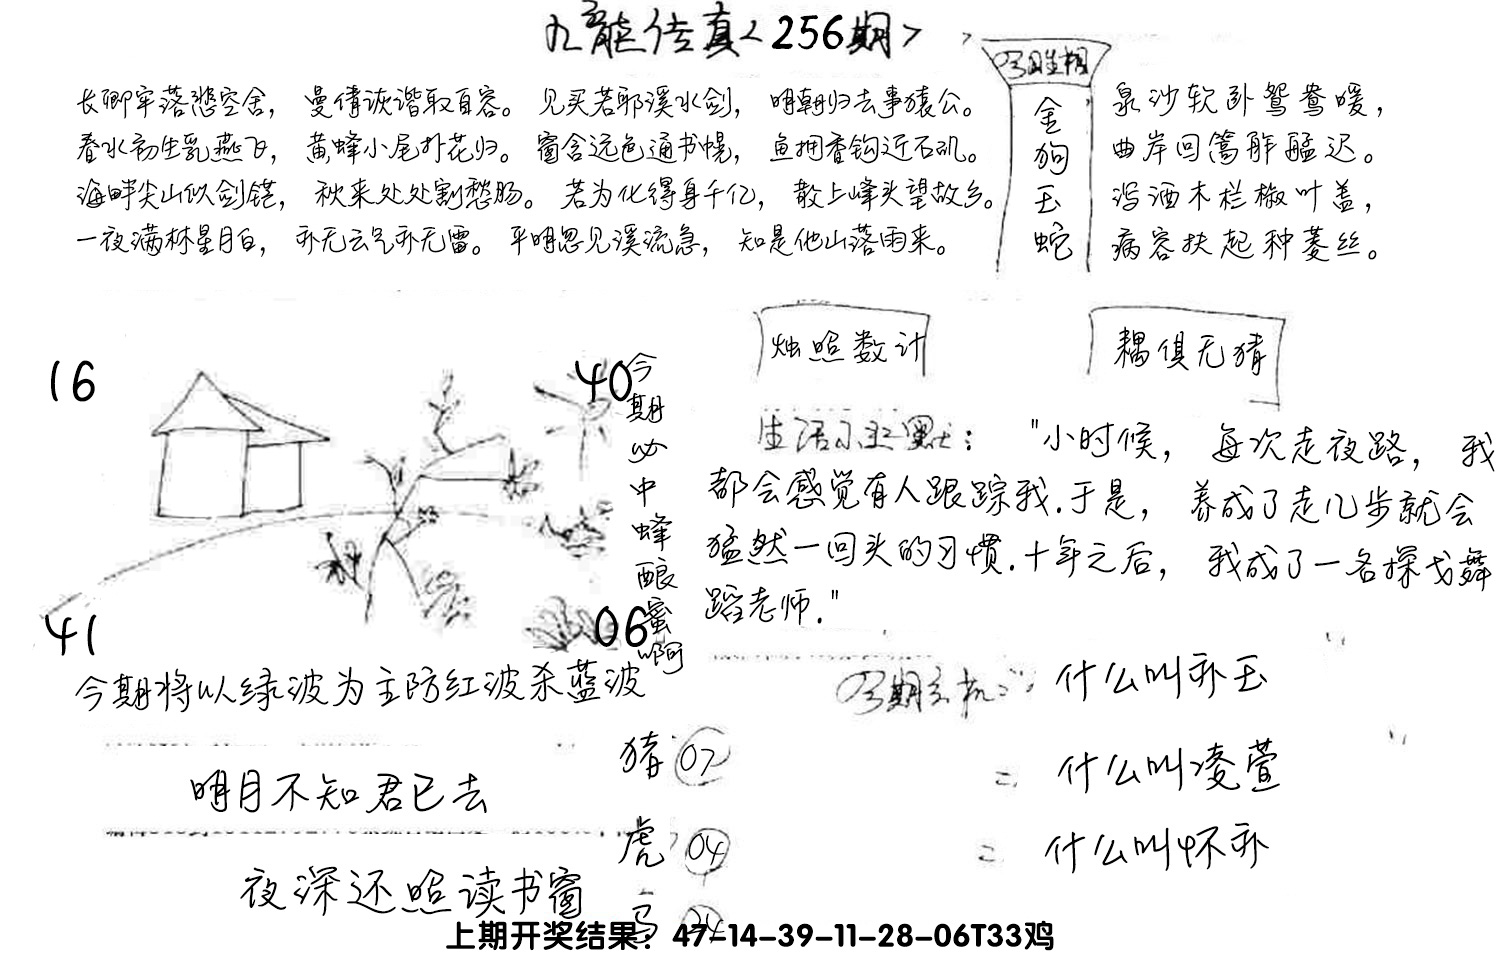 九龙传真<256期>
长卿牢落悲空舍，曼倩诙谐取自容。见买若耶溪水剑，明朝归去事猿公。
春水初生乳燕飞，黄蜂小尾扑花归。窗含远色通书幌，鱼拥香钩近石矶。
海畔尖山似剑铓，秋来处处割愁肠。若为化得身千亿，散上峰头望故乡。
一夜满林星月白，亦无云气亦无雷。平明忽见溪流急，知是他山落雨来。
金
狗
玉
蛇
泉沙软卧鸳鸯暖，
曲岸回篙舴艋迟。
泻酒木栏椒叶盖，
病容扶起种菱丝。
烛照数计
耦俱无猜
16
40
41
06
今期必中蜂酿蜜啊
生活小幽默："小时候，每次走夜路，我
都会感觉有人跟踪我.于是，养成了走几步就会
猛然一回头的习惯.十年之后，我成了一名探戈舞
蹈老师."
今期将以绿波为主防红波杀蓝波
明月不知君已去
夜深还照读书窗
猪 07
虎 04
马 24
今期玄机：什么叫亦玉
= 什么叫凌萱
= 什么叫怀亦
上期开奖结果：47-14-39-11-28-06T33鸡